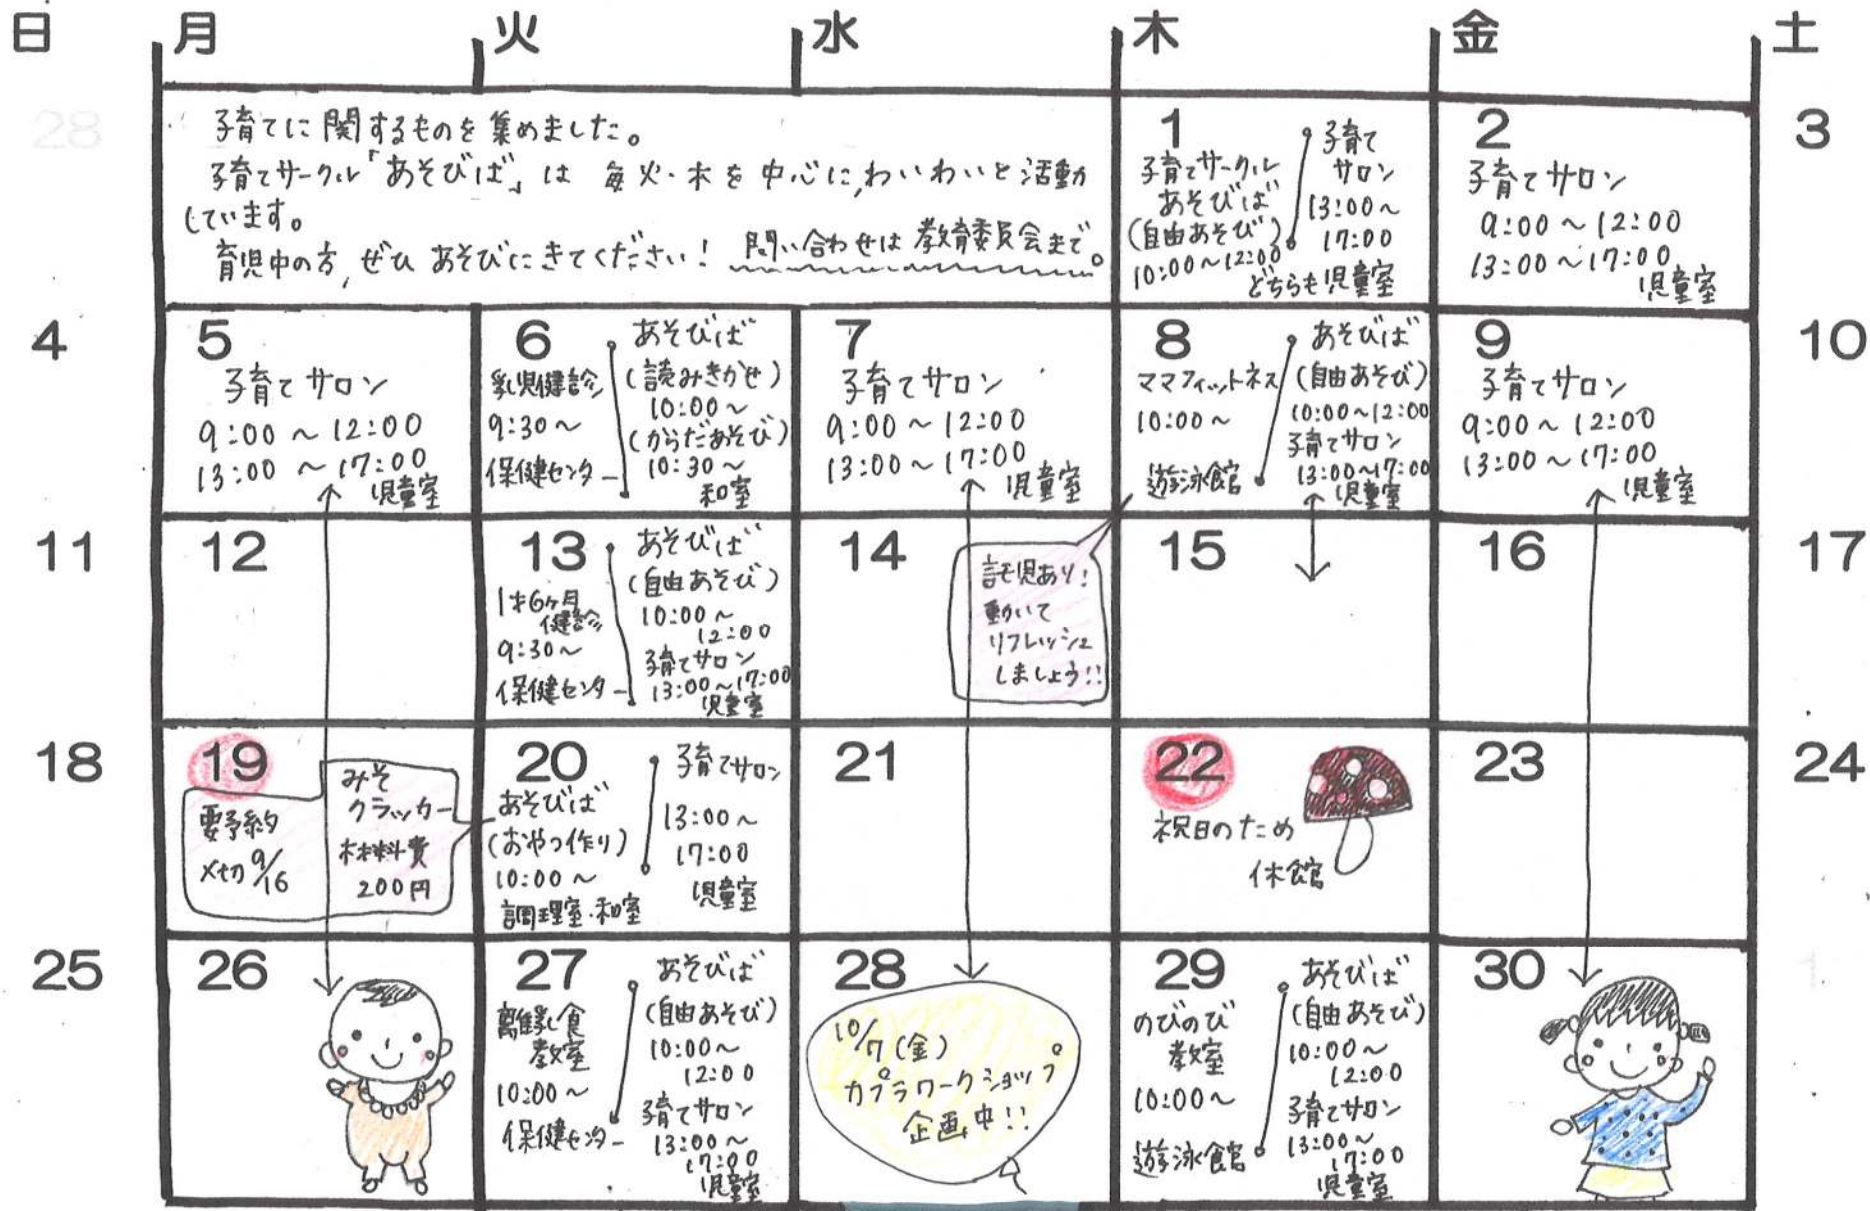 日 月 火 水 木 金 土
28
子育てに関するものを集めました。
子育てサークル「あそびば」は 毎火・木を中心に、わいわいと活動
しています。
育児中の方、ぜひ あそびにきてください! 問い合わせは 教育委員会まで。
1
子育てサークル
あそびば
(自由あそび)
10:00~12:00
子育て
サロン
13:00~
17:00
どちらも児童室
2
子育てサロン
9:00~12:00
13:00~17:00
児童室
3
4
5
子育てサロン
9:00~12:00
13:00~17:00
児童室
6
乳児健診
9:30~
保健センター
あそびば
(読みきかせ)
10:00~
(からだあそび)
10:30~
和室
7
子育てサロン
9:00~12:00
13:00~17:00
児童室
8
ママフィットネス
10:00~
遊泳館
あそびば
(自由あそび)
10:00~12:00
子育てサロン
13:00~17:00
児童室
9
子育てサロン
9:00~12:00
13:00~17:00
児童室
10
11
12
13
1才6ヶ月
健診
9:30~
保健センター
あそびば
(自由あそび)
10:00~
12:00
子育てサロン
13:00~17:00
児童室
14
託児あり!
動いて
リフレッシュ
しましょう!!
15
16
17
18
19
要予約
〆切9/16
みそ
クラッカー
材料費
200円
20
あそびば
(おやつ作り)
10:00~
調理室・和室
子育てサロン
13:00~
17:00
児童室
21
22
祝日のため
休館
23
24
25
26
27
離乳食
教室
10:00~
保健センター
あそびば
(自由あそび)
10:00~
12:00
子育てサロン
13:00~
17:00
児童室
28
10/7(金)
カプラワークショップ
企画中!!
29
のびのび
教室
10:00~
遊泳館
あそびば
(自由あそび)
10:00~
12:00
子育てサロン
13:00~
17:00
児童室
30
1